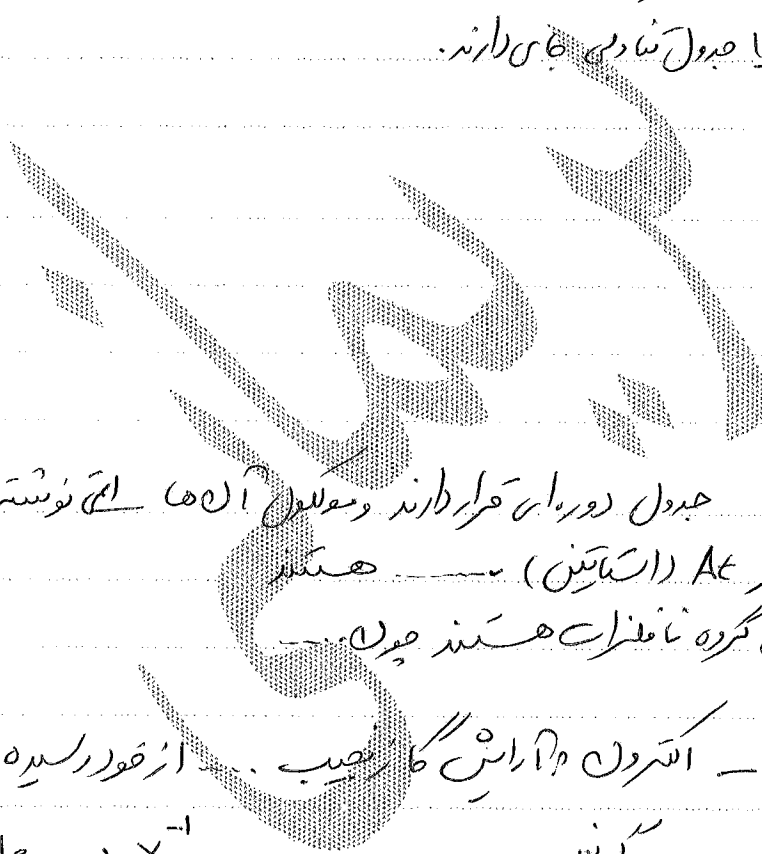 یا جدول تناوبی جای دارند.
جدول دوره‌ای قرار دارند و مولکول آن‌ها ... اتمی نوشته
At (استاتین) ..... هستند
گروه نافلزات هستند چون .....
ـ الکترون به آرایش گاز نجیب .... از خود رسیده
X⁻¹